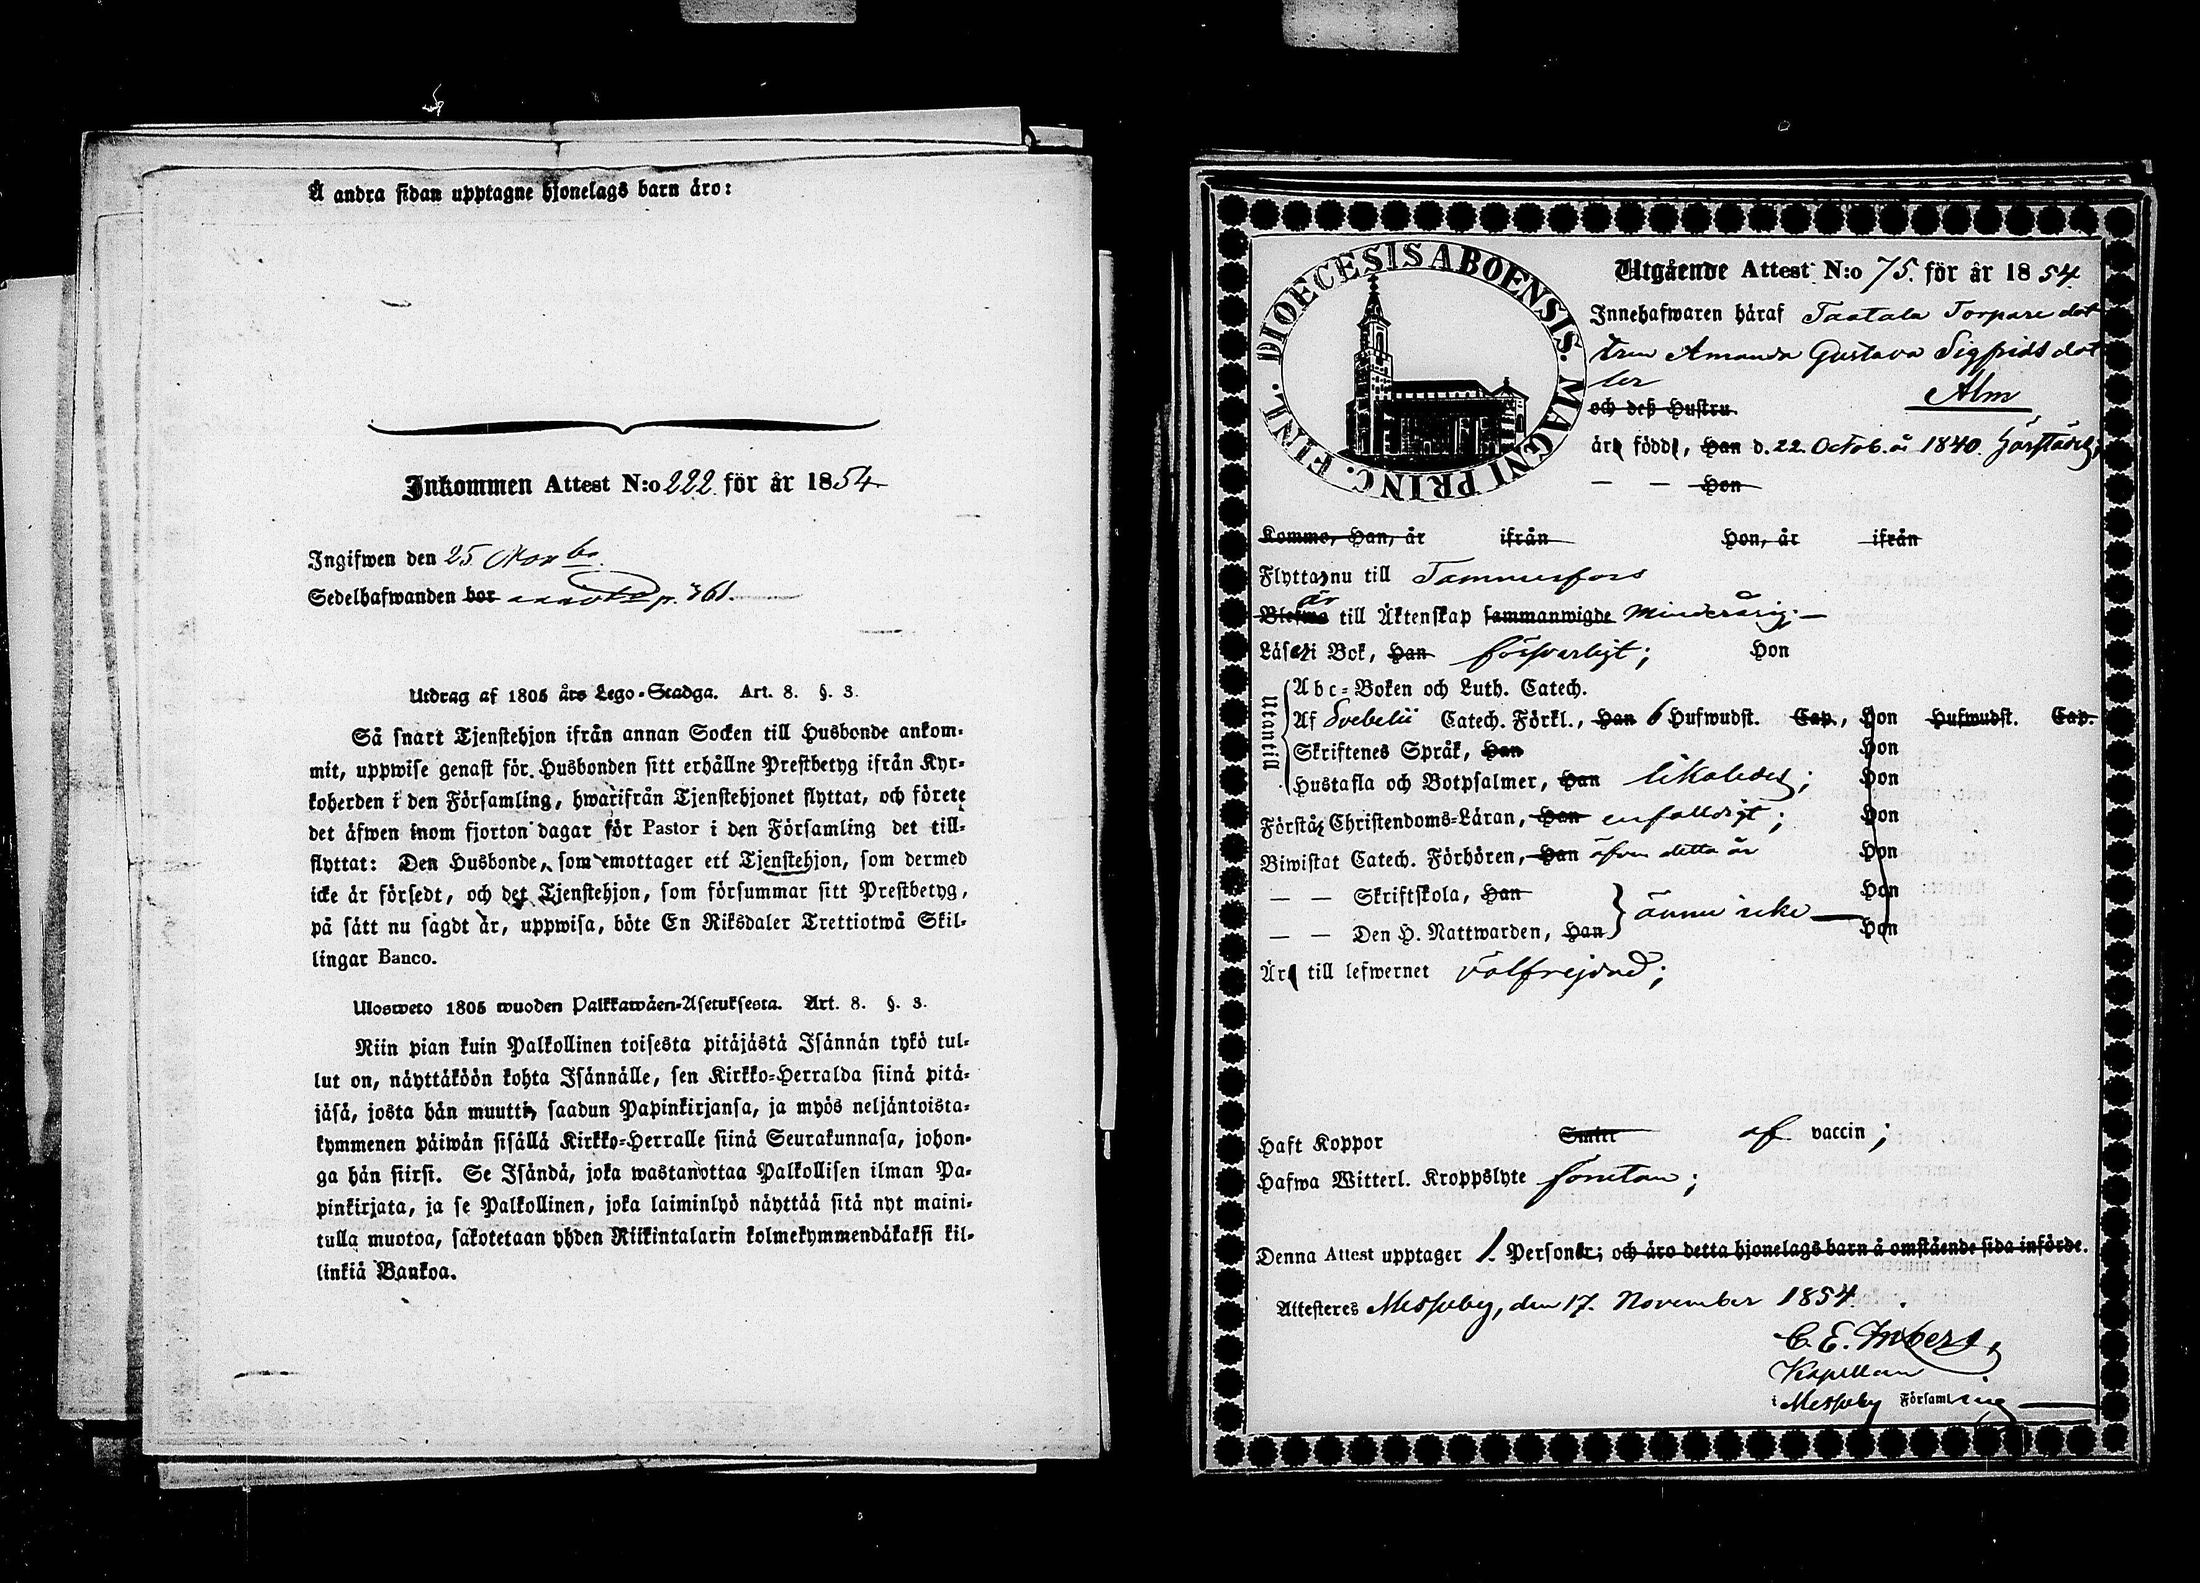 Å andra sidan upptagne hjonelags barn äro:
Inkommen Attest N:o 222. för år 1854
Ingifwen den 25 Novbr
Sedelhafwanden bor p. 361.
Utdrag af 1805 års Lego-Stadga. Art. 8. §. 3.
Så snart Tjenstehjon ifrån annan Socken till Husbonde ankom-
mit, uppwise genast för Husbonden sitt erhållne Prestbetyg ifrån Kyr-
koherden i den Församling, hwarifrån Tjenstehjonet flyttat, och förete
det äfwen inom fjorton dagar för Pastor i den Församling det till-
flyttat: Den Husbonde, som emottager ett Tjenstehjon, som dermed
icke är försedt, och det Tjenstehjon, som försummar sitt Prestbetyg,
på sätt nu sagdt är, uppwisa, böte En Riksdaler Trettiotwå Skil-
lingar Banco.
Ulosweto 1805 wuoden Palkkawäen-Asetuksesta. Art. 8. §. 3.
Niin pian kuin Palkollinen toisesta pitäjästä Isännän tykö tul-
lut on, näyttäköön kohta Isännälle, sen Kirkko-Herralda siinä pitä-
jäsä, josta hän muutti, saadun Papinkirjansa, ja myös neljäntoista-
kymmenen päiwän sisällä Kirkko-Herralle siinä Seurakunnasa, johon-
ga hän siirsi. Se Isändä, joka wastanottaa Palkollisen ilman Pa-
pinkirjata, ja se Palkollinen, joka laiminlyö näyttää sitä nyt maini-
tulla muotoa, sakotetaan yhden Riikintalarin kolmekymmendäkaksi kil-
linkiä Bankoa.
DIOECESIS ABOENSIS. MAGNI PRINC. FINL.
Utgående Attest N:o 75. för år 1854
Innehafwaren häraf Taatala Torpare dot
tren Amanda Gustava Sigfrids dot
ter Alm
och deß Hustru
äro födde, Han d. 22. Octob. å 1840. härstädes,
— — Hon
Komme, Han, år ifrån Hon, år ifrån
Flytta nu till Tammerfors
är
Blefwo till Äktenskap sammanwigde Minderårig; —
Läser i Bok, Han försvarligt; Hon
Utantill
Abc-Boken och Luth. Catech.
Af Svebelii Catech. Förkl., Han 6 Hufwudst. Cap., Hon Hufwudst. Cap.
Skriftenes Språk, Han Hon
Hustafla och Botpsalmer, Han likaledes; Hon
Förstår Christendoms-Läran, Han enfaldigt; Hon
Biwistat Catech. Förhören, Han äfven detta år Hon
— — Skriftskola, Han Hon
ännu icke
— — Den H. Nattwarden, Han Hon
Äro till lefwernet välfrejdad;
Haft Koppor Smitt af vaccin;
Hafwa Witterl. Kroppslyte förutan;
Denna Attest upptager 1. Personer; och äro detta hjonelags barn å omstående sida införde.
Attesteres Messuby, den 17. November 1854.
C. E.
Kapellan
i Messuby Församling